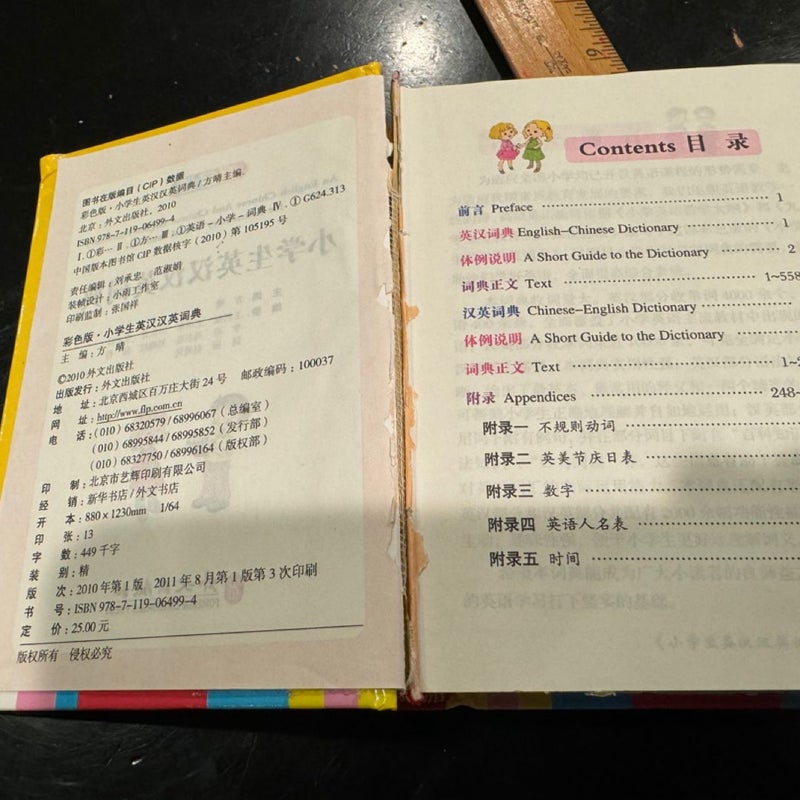 图书在版编目（CIP）数据
彩色版·小学生英汉汉英词典/方晴主编.
北京：外文出版社，2010
ISBN 978-7-119-06499-4
Ⅰ.①彩… Ⅱ.①方… Ⅲ.①英语-小学-词典 Ⅳ.①G624.313
中国版本图书馆CIP数据核字（2010）第105195号
责任编辑：刘承忠 范淑娟
装帧设计：小雨工作室
印刷监制：张国祥
彩色版·小学生英汉汉英词典
主 编：方 晴
©2010外文出版社
出版发行：外文出版社
地 址：北京西城区百万庄大街24号 邮政编码：100037
网 址：http://www.flp.com.cn
电 话：(010) 68320579/68996067（总编室）
(010) 68995844/68995852（发行部）
(010) 68327750/68996164（版权部）
印 制：北京市艺辉印刷有限公司
经 销：新华书店/外文书店
开 本：880×1230mm 1/64
印 张：13
字 数：449千字
装 别：精
版 次：2010年第1版 2011年8月第1版第3次印刷
书 号：ISBN 978-7-119-06499-4
定 价：25.00元
版权所有 侵权必究
Contents 目 录
前言 Preface 1
英汉词典 English-Chinese Dictionary 1
体例说明 A Short Guide to the Dictionary 2
词典正文 Text 1~558
汉英词典 Chinese-English Dictionary
体例说明 A Short Guide to the Dictionary
词典正文 Text 1~2
附录 Appendices 248-
附录一 不规则动词
附录二 英美节庆日表
附录三 数字
附录四 英语人名表
附录五 时间